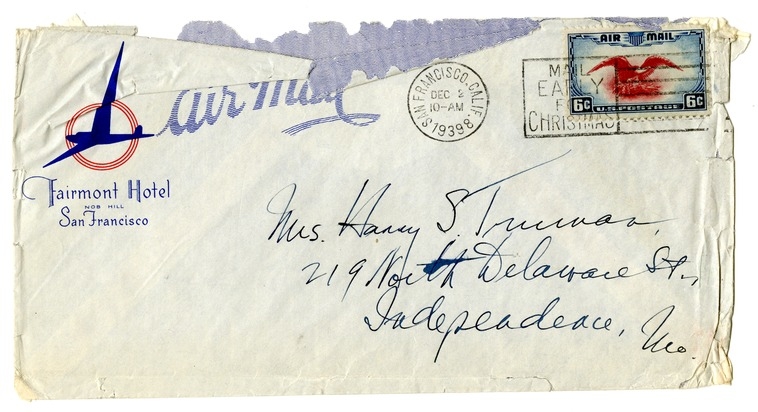 AIR MAIL
6¢ 6¢
U.S. POSTAGE
MAIL
EARLY
FOR
CHRISTMAS
SAN FRANCISCO, CALIF.
DEC 2
10-AM
1939
8
air mail
Fairmont Hotel
NOB HILL
San Francisco
Mrs. Harry S. Truman,
219 North Delaware St.,
Independence,
Mo.